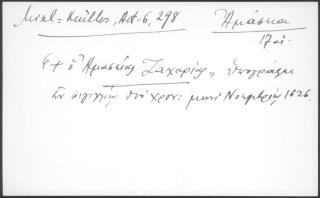 Mikl-Müller, Act-6, 298
Ἀμάσεια
17 αἰ.
Ϛ + ὁ Ἀμασείας Ζαχαρίας,, ὑπογράφει
ἐν σιγιλλίῳ ὑπὸ χρον: μηνὶ Νοεμβρίῳ 1626.